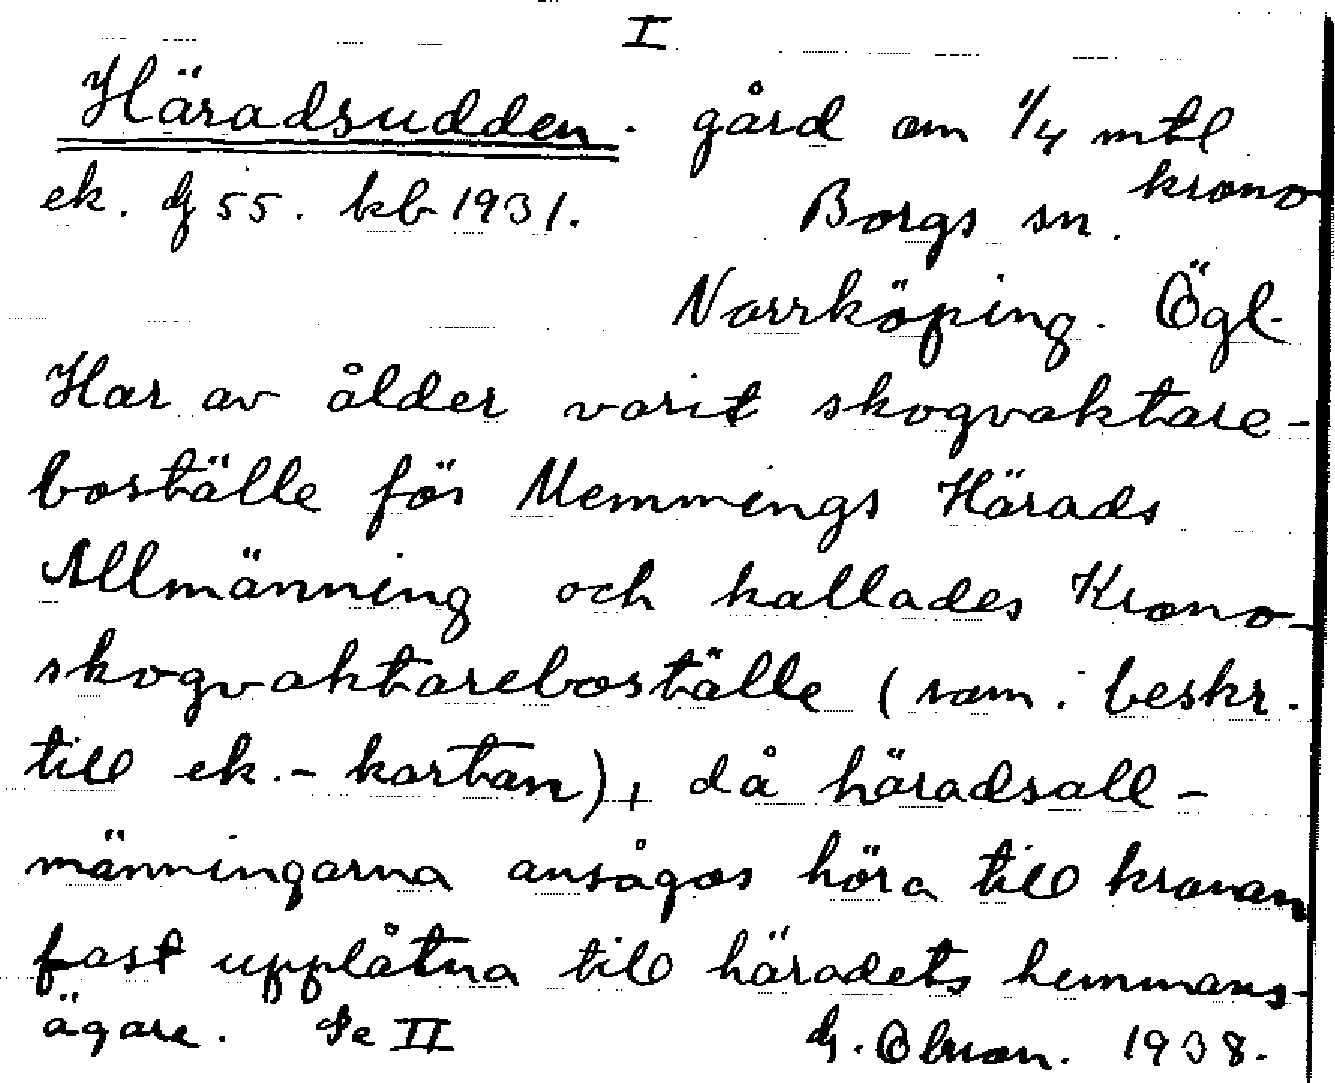 I
Häradsudden. gård om 1/4 mtl
krono
ek. bl 55. kb 1931. Borgs sn.
Norrköping. Ögl.
Har av ålder varit skogvaktare-
boställe för Memmings Härads
Allmänning och kallades Krono-
skogvaktareboställe (som. beskr.
till ek.-kartan), då häradsall-
männingarna ansågos höra till kronan
fast upplåtna till häradets hemmans-
ägare. Se II 1938.